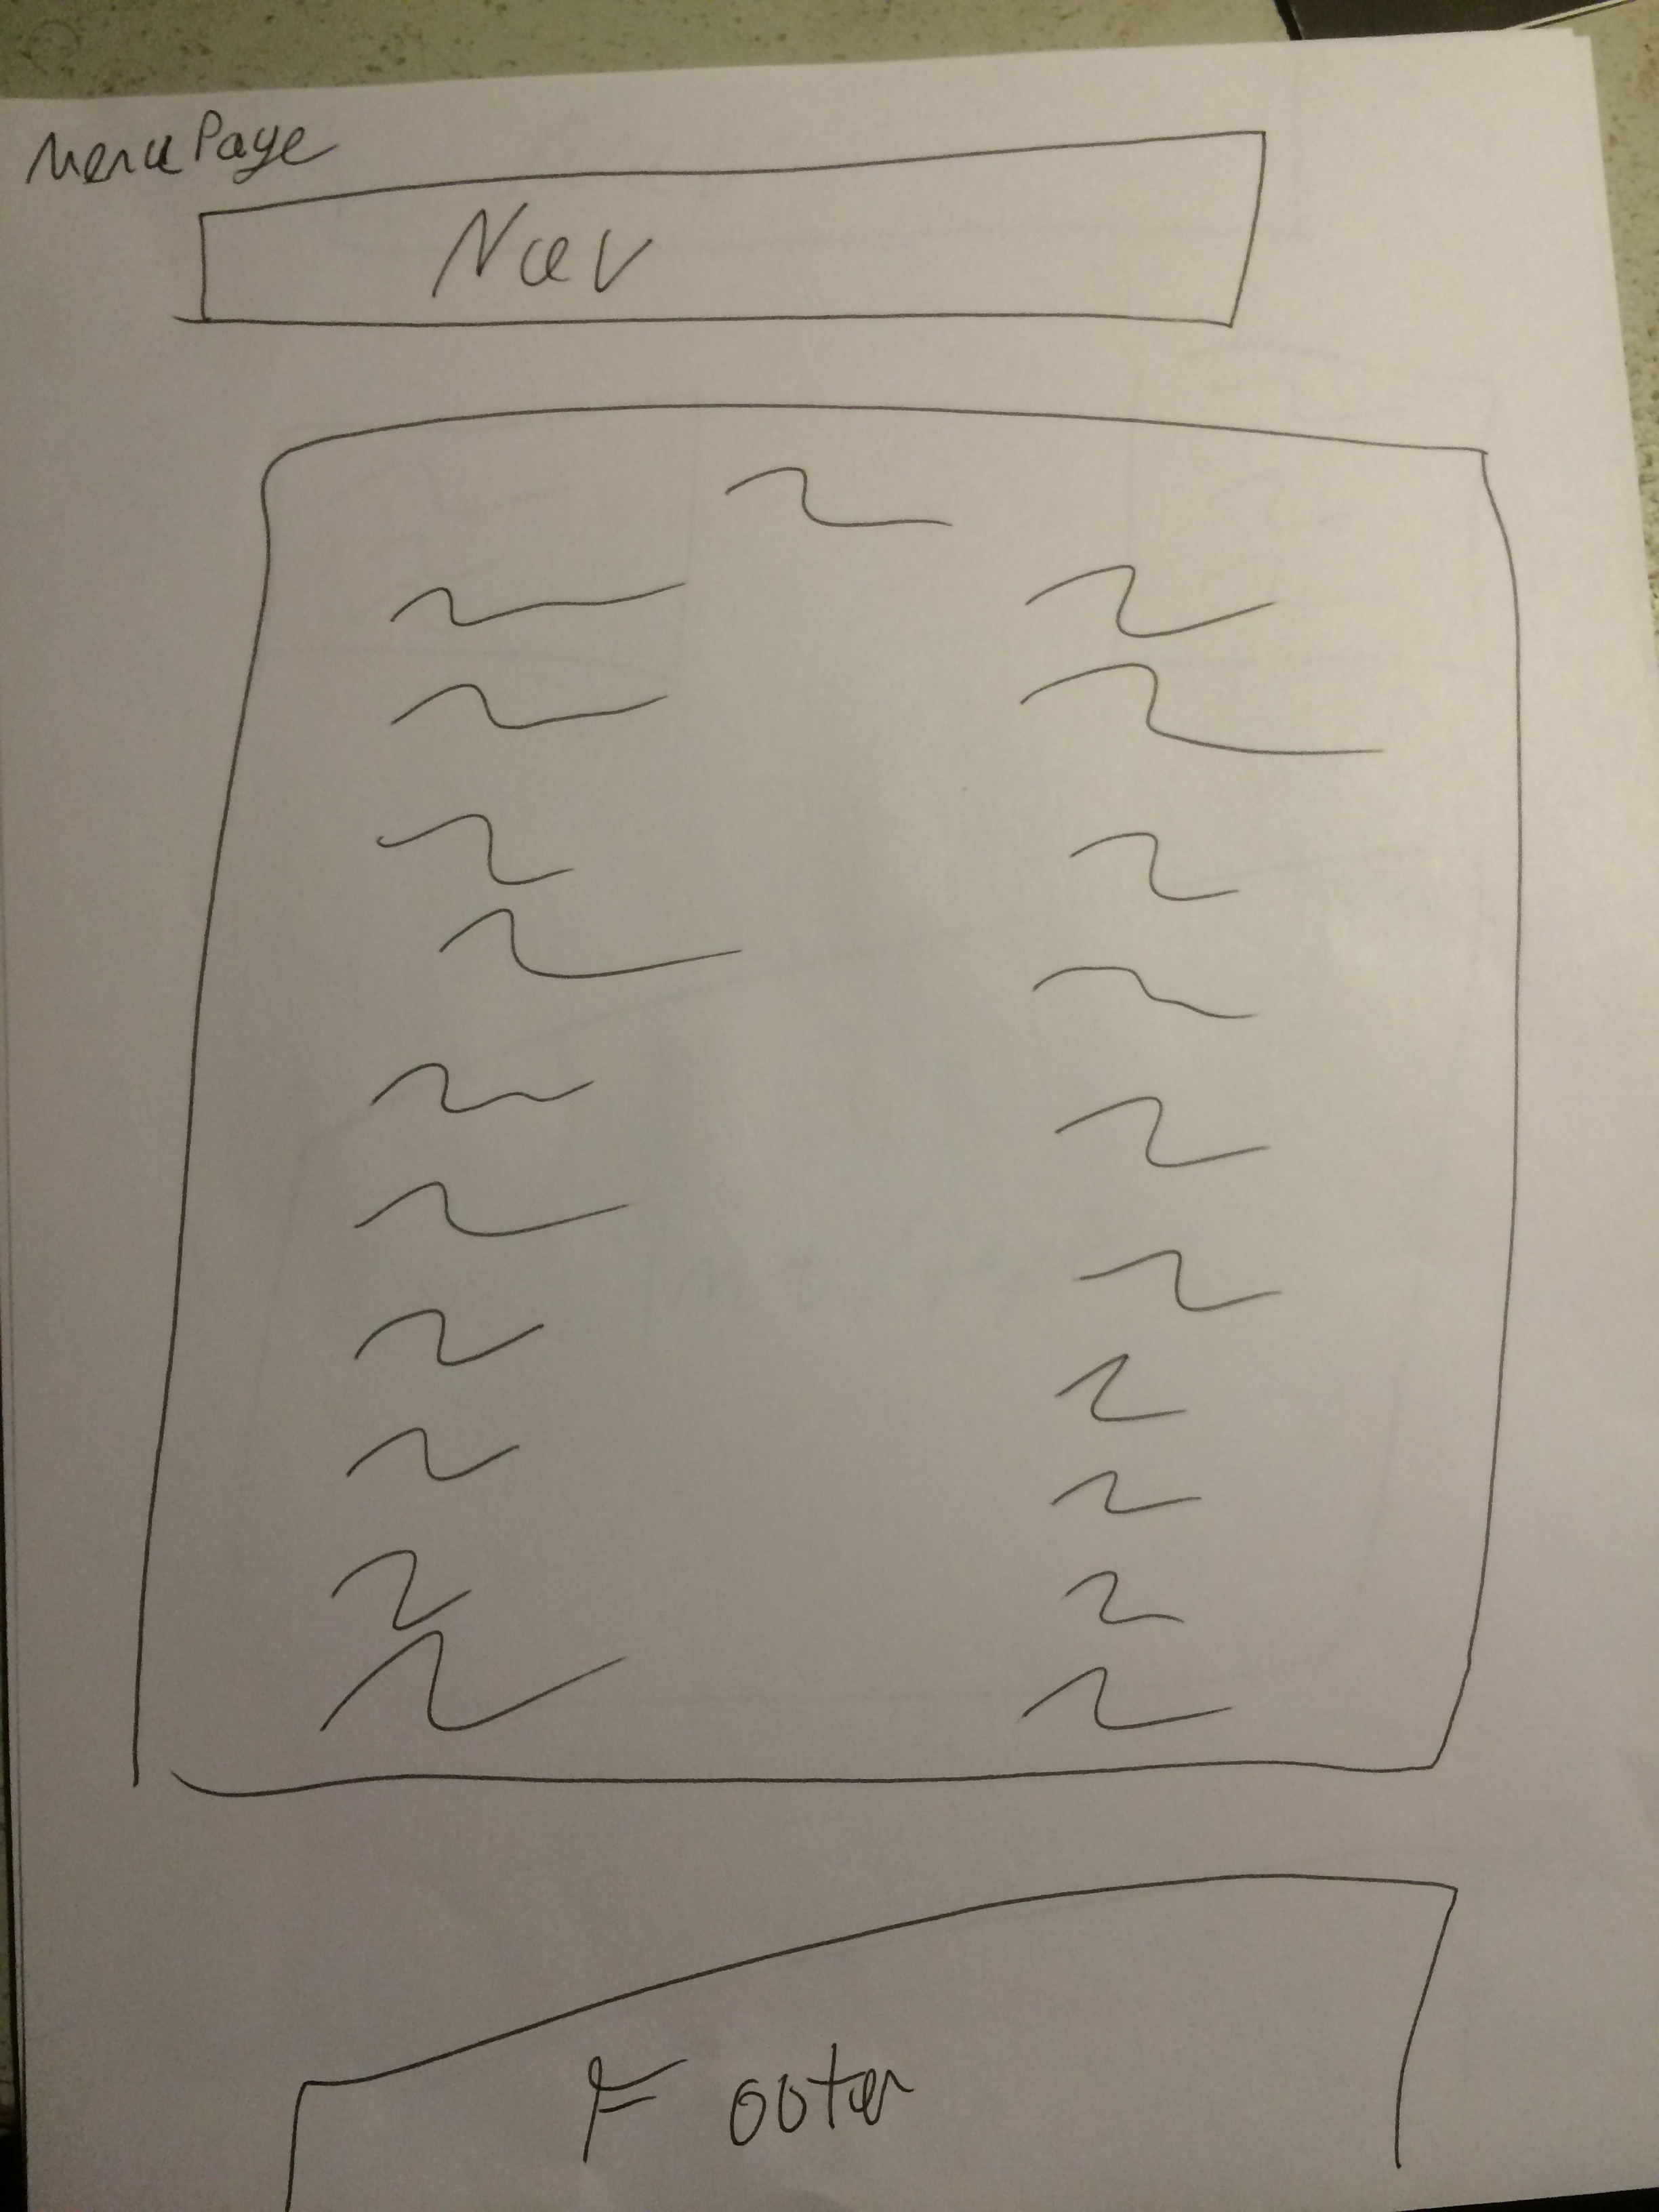 Menu Page
Nav
Footer